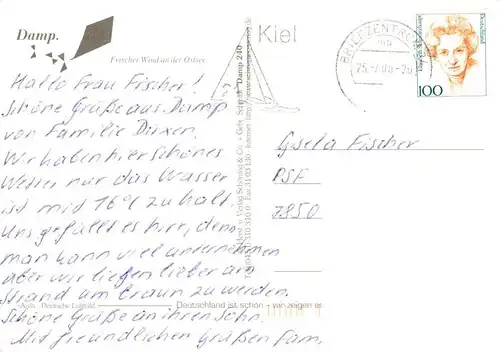 Damp.
Frischer Wind an der Ostsee.
Hallo Frau Fischer!
Schöne Grüße aus Damp
von Familie Dirxen.
Wir haben hier schönes
Wetter nur das Wasser
ist mit 16°C zu kalt.
Uns gefällt es hier, denn
man kann viel unternehmen
aber wir liegen lieber am
Strand um braun zu werden.
Schöne Grüße an ihren Sohn.
Mit freundlichen Grüßen Fam.
Deutschland ist schön - wir zeigen es
Damp 240
Kiel
BRIEFZENTRUM
Deutschland
100
Gisela Fischer
PSF
7850